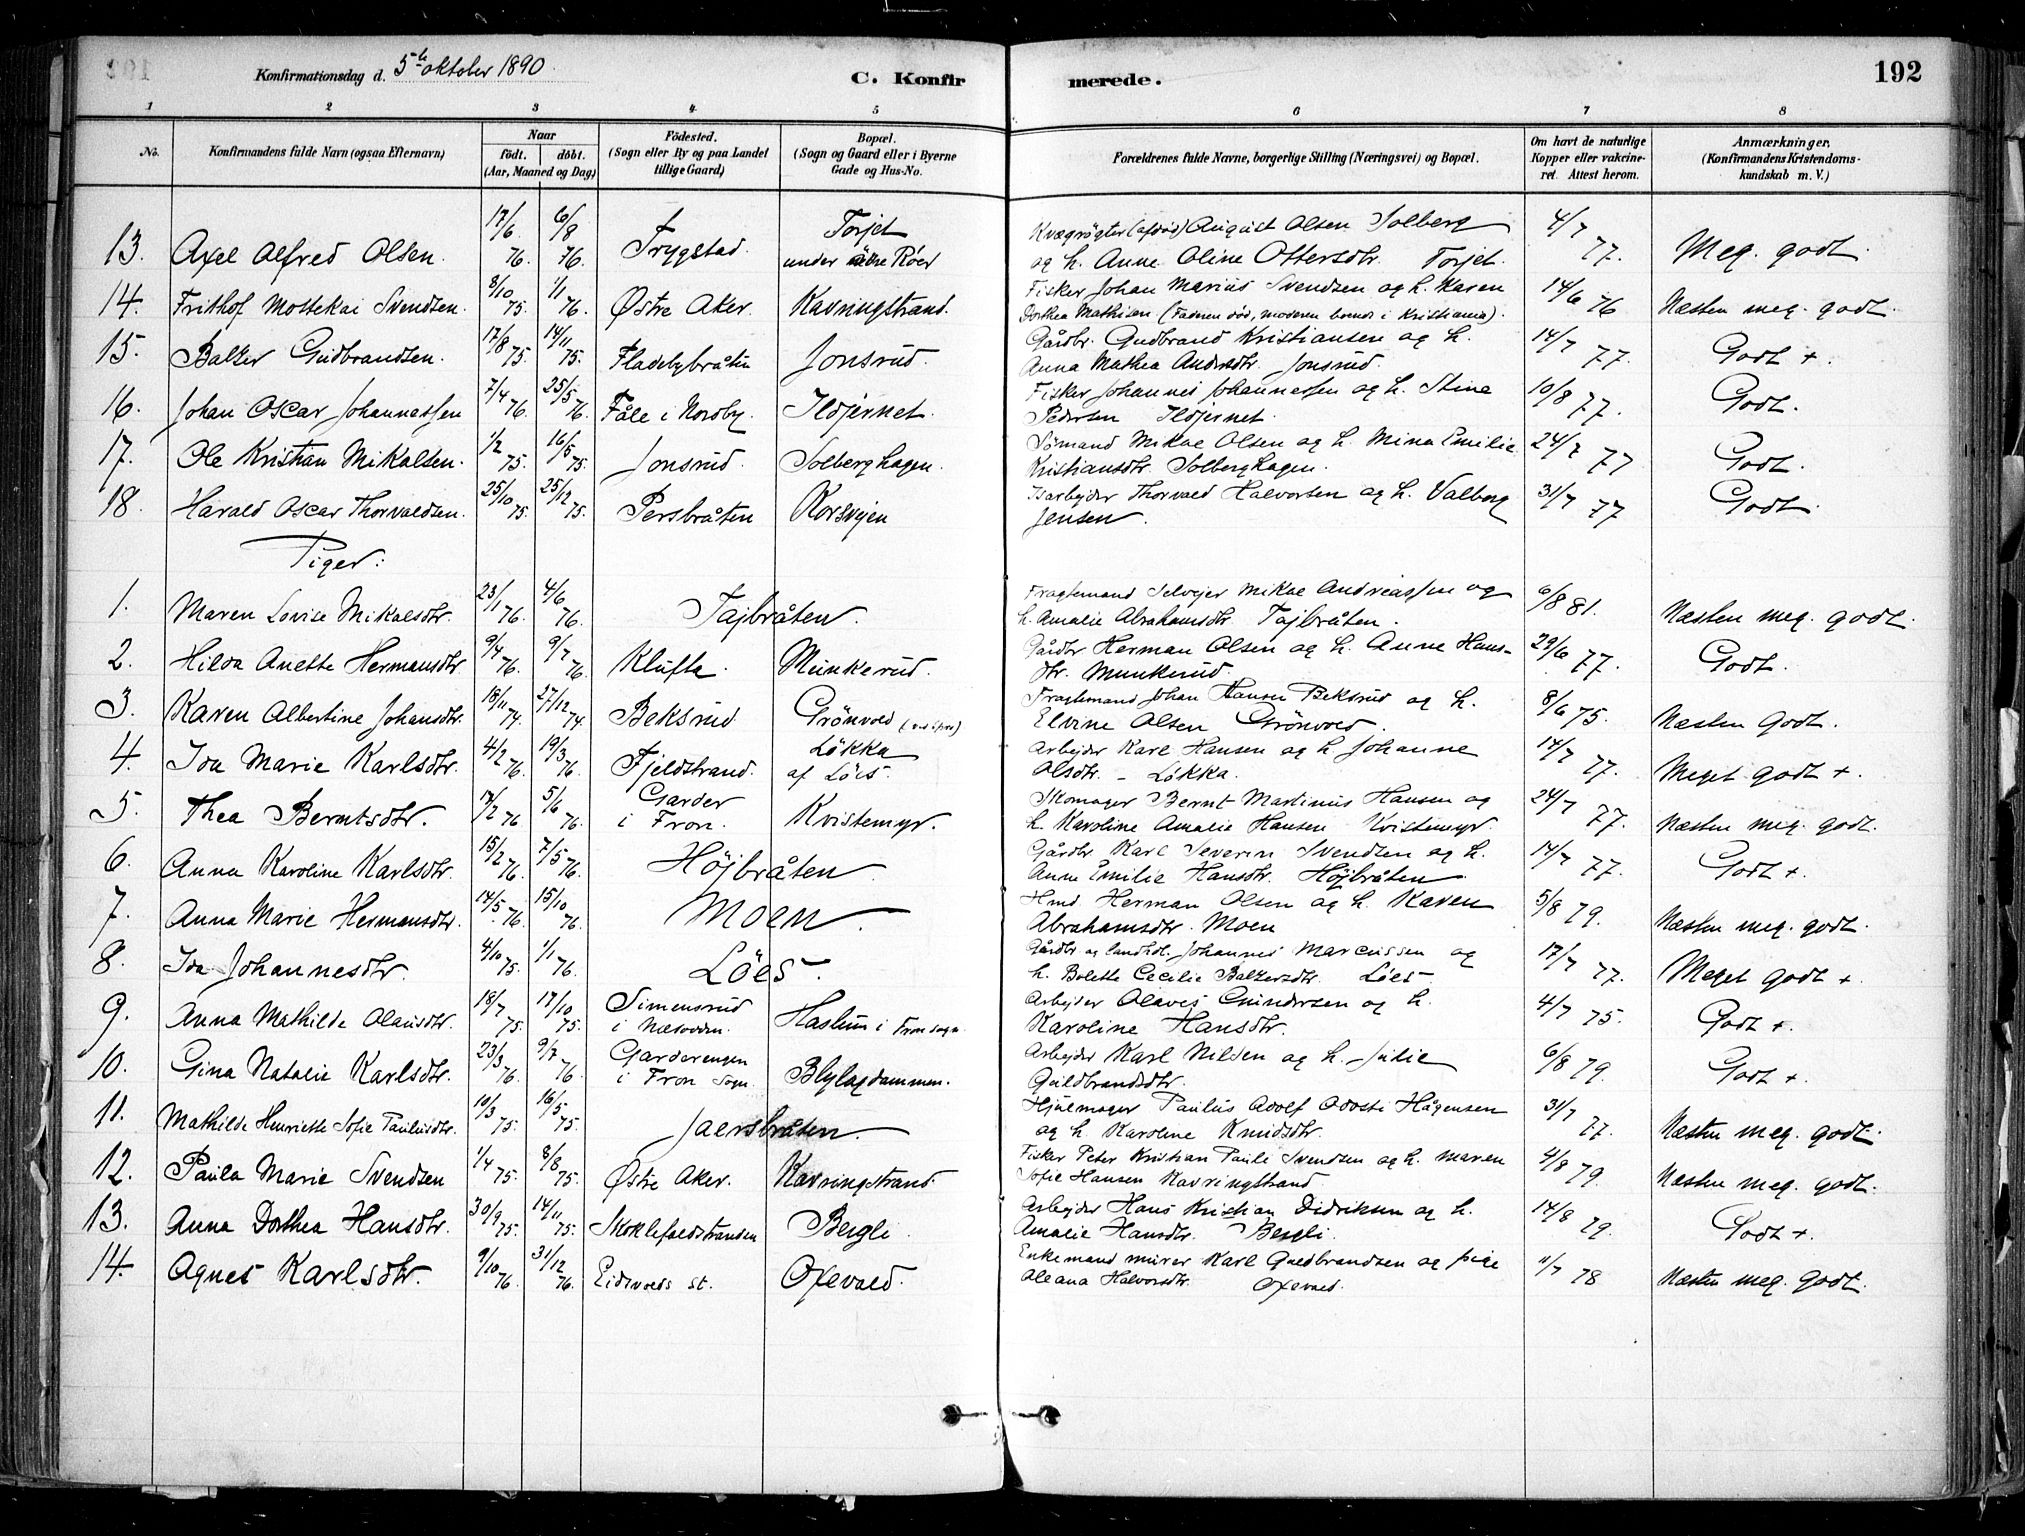 Konfirmationsdag d. 5te oktober 1890
C. Konfir
merede.
192
1 2 3 4 5 6 7 8
No.
Konfirmandens fulde Navn (ogsaa Efternavn)
Naar
födt. döbt.
(Aar, Maaned og Dag)
Födested.
(Sogn eller By og paa Landet
tillige Gaard)
Bopæl.
(Sogn og Gaard eller i Byerne
Gade og Hus-No.
Forældrenes fulde Navne, borgerlige Stilling (Næringsvei) og Bopæl.
Om havt de naturlige
Kopper eller vakcine-
ret. Attest herom.
Anmærkninger.
(Konfirmandens Kristendoms-
kundskab m. V.)
13. Axel Alfred Olsen. 17/6 76. 6/8 76. Trygstad. Torjet under Røer
Kvægrögter (afdød) August Olsen Solberg
og h. Anne Oline Ottersdtr. Torjet. 4/7 77. Meg. godt.
14. Frithof Mostekai Svendsen. 8/10 75. 1/1 76. Østre Aker. Kavringstrand.
Fisker Johan Marius Svendsen og h. Karen
Dorthea Mathisen (Faderen död, moderen bor i Kristiania). 14/6 76 Næsten meg. godt.
15. Balzer Gudbrandsen. 17/8 75. 14/11 75. Fladebybråten Jonsrud.
Gårdbr. Gudbrand Kristiansen og h.
Anna Mathea Andersdtr. Jonsrud. 14/7 77. Godt +.
16. Johan Oscar Johannessen 7/4 76. 25/5 76. Fåle i Nordby. Ildjernet.
Fisker Johannes Johannessen og h. Stine
Pedersen Ildjernet. 10/8 77. Godt.
17. Ole Kristian Mikalsen. 1/2 75. 16/5 75. Jonsrud. Solberghagen.
Sömand Mikal Olsen og h. Mina Emilie
Kristiansdtr. Solberghagen. 24/7 77 Godt.
18. Harald Oscar Thorvaldsen. 25/10 75. 25/12 75. Persbråten Korsvejen
Isarbejder Thorvald Halvorsen og h. Valborg
Jensen. 31/7 77 Godt.
Piger:
1. Maren Lovise Mikalsdtr. 23/1 76. 4/6 76. Tajbråten.
Fragtemand Selvejer Mikal Andreassen og
h. Amalie Abrahamsdtr. Tajbråten. 6/8 81. Næsten meg. godt.
2. Hilda Anette Hermansdtr. 9/4 76. 9/7 76. Klufta. Munkerud.
Gårdbr Herman Olsen og h. Anne Hans-
dtr. Munkerud. 29/6 77. Godt.
3. Karen Albertine Johansdtr. 18/11 74. 27/12 74. Beksrud Grönvold
Fragtemand Johan Hansen Beksrud og h.
Elvine Olsen Grönvold. 8/6 75. Næsten Godt.
4. Ida Marie Karlsdtr. 4/2 76. 19/3 76. Fjeldstrand. Lökka af Löes
Arbejder Karl Hansen og h Johanne
Olsdtr. - Lökka. 14/7 77. Meget godt +.
5. Thea Berntsdtr. 17/2 76 5/6 76. Garder i Fron. Kvistemyr.
Skomager Bernt Martinus Hansen og
h. Karoline Amalie Hansen Kvistemyr. 24/7 77. Næsten meg. godt.
6. Anna Karoline Karlsdtr. 15/2 76. 7/5 76. Höjbråten.
Gårdbr. Karl Severin Svendsen og h.
Anne Emilie Hansdtr. Höjbråten. 14/7 77. Godt +.
7. Anna Marie Hermansdtr. 14/5 76. 15/10 76. Moen.
Hmd Herman Olsen og h. Karen
Abrahamsdtr. Moen 5/8 79. Næsten meg. godt.
8. Ida Johannesdtr. 4/10 75. 1/1 76. Löes.
Gårdbr og landhdl. Johannes Marcussen og
h. Bolette Cecilie Balzersdtr. Löes 17/7 77. Meget godt +
9. Anna Mathilde Olausdtr. 18/7 75. 17/10 75. Simensrud i Næsodden. Haslum i Fron sogn.
Arbejder Olaves Gundersen og h.
Karoline Hansdtr. 4/7 75. Godt +.
10. Gina Natalie Karlsdtr. 23/3 76. 9/7 76. Garderengen i Fron Sogn. Blylagdammen.
Arbejder Karl Nilsen og h. Julie
Guldbrandsdtr. 6/8 79. Godt +.
11. Mathilde Henriette Sofie Paulusdtr. 10/3 75. 16/5 75. Jaersbråten.
Hjulmager Paulus Adolf Hågensen
og h Karoline Knudsdtr. 31/7 77. Næsten meg. godt.
12. Paula Marie Svendsen 1/4 75. 8/8 75. Østre Aker. Kavringstrand.
Fisker Peter Kristian Pauli Svendsen og h. Maren
Sofie Hansen Kavringstrand. 4/8 79. Næsten meg. godt.
13. Anna Dorthea Hansdtr. 30/9 75. 14/11 75. Skoklefaldstranden Bergli.
Arbejder Hans Kristian Didriksen og h.
Amalie Hansdtr. Bergli. 14/8 79. Godt +.
14. Agnes Karlsdtr. 9/10 76. 31/12 76. Eidsvolds st. Oxevald.
Enkemand murer Karl Guldbrandsen og pige
Oleana Halvorsdtr. Oxevald. 11/7 78 Næsten meg. godt.